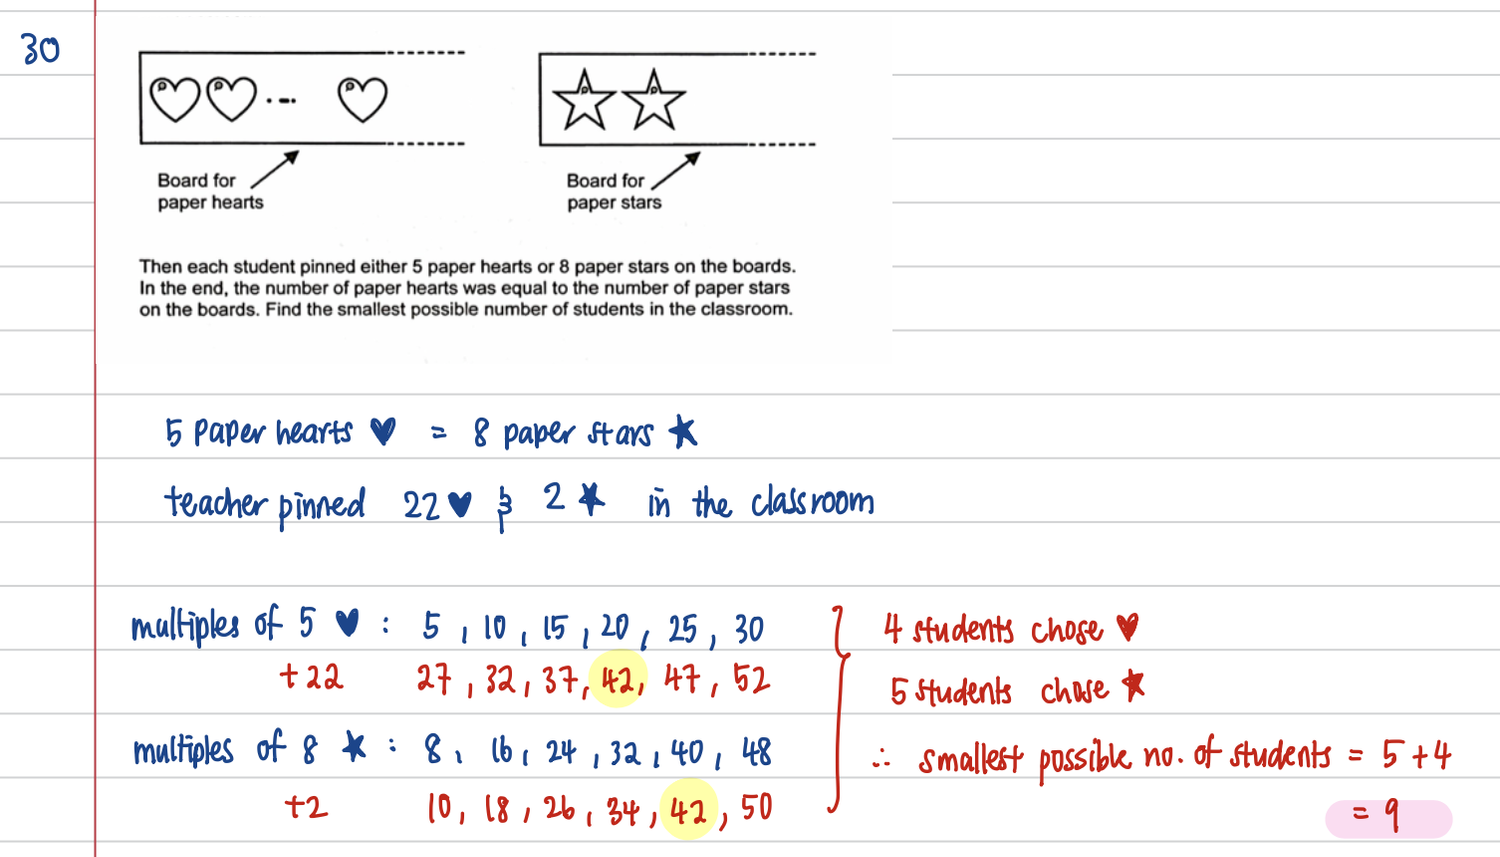 30
Board for
paper hearts
Board for
paper stars
Then each student pinned either 5 paper hearts or 8 paper stars on the boards.
In the end, the number of paper hearts was equal to the number of paper stars
on the boards. Find the smallest possible number of students in the classroom.
5 paper hearts ♥ = 8 paper stars ★
teacher pinned 22 ♥ & 2 ★ in the classroom
multiples of 5 ♥ : 5 , 10 , 15 , 20 , 25 , 30
+22 27 , 32 , 37 , 42 , 47 , 52
multiples of 8 ★ : 8 , 16 , 24 , 32 , 40 , 48
+2 10 , 18 , 26 , 34 , 42 , 50
4 students chose ♥
5 students chose ★
∴ smallest possible no. of students = 5 + 4
= 9